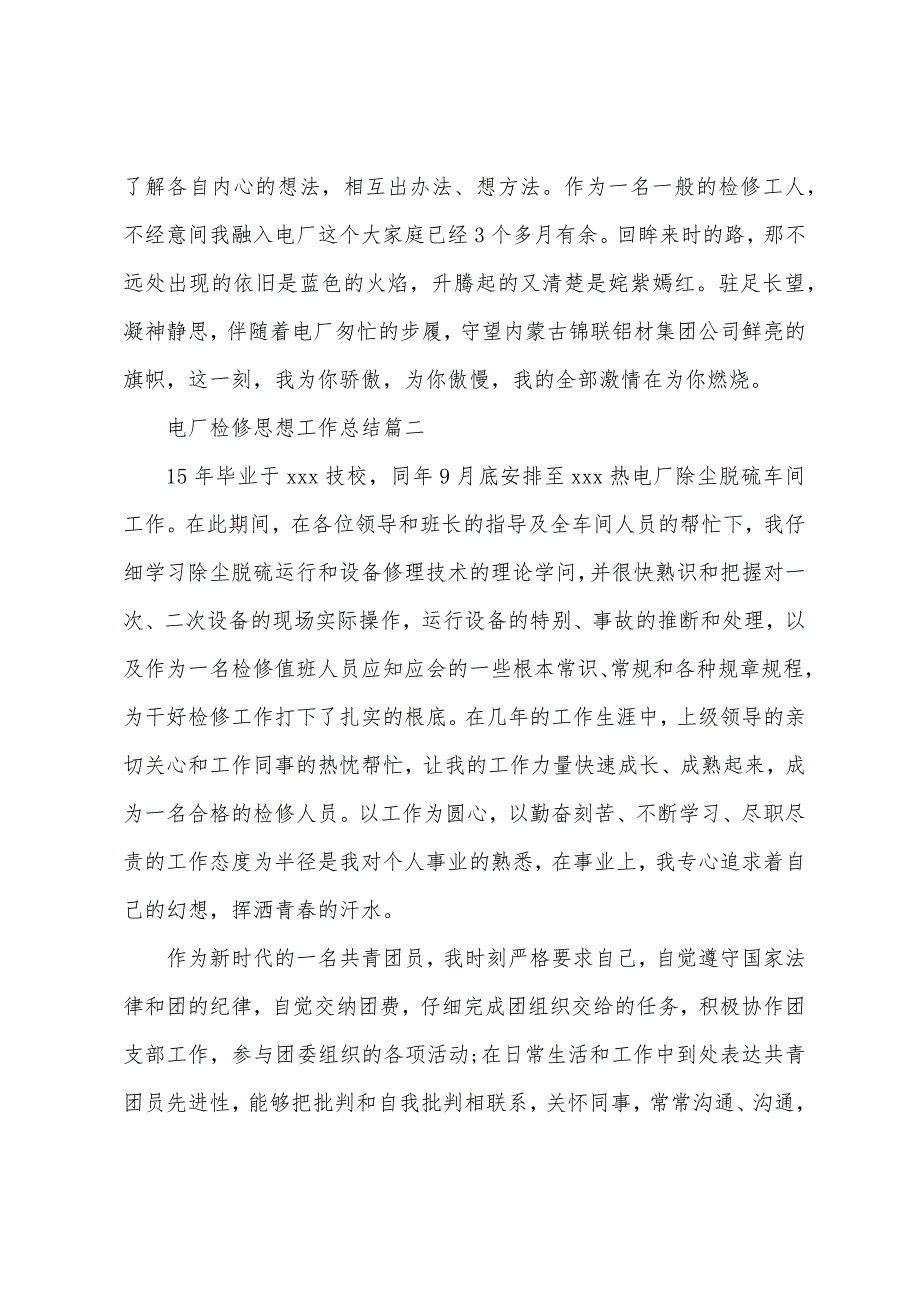 了解各自内心的想法，相互出办法、想方法。作为一名一般的检修工人，
不经意间我融入电厂这个大家庭已经 3 个多月有余。回眸来时的路，那不
远处出现的依旧是蓝色的火焰，升腾起的又清楚是姹紫嫣红。驻足长望，
凝神静思，伴随着电厂匆忙的步履，守望内蒙古锦联铝材集团公司鲜亮的
旗帜，这一刻，我为你骄傲，为你傲慢，我的全部激情在为你燃烧。
电厂检修思想工作总结篇二
15 年毕业于 xxx 技校，同年 9 月底安排至 xxx 热电厂除尘脱硫车间
工作。在此期间，在各位领导和班长的指导及全车间人员的帮忙下，我仔
细学习除尘脱硫运行和设备修理技术的理论学问，并很快熟识和把握对一
次、二次设备的现场实际操作，运行设备的特别、事故的推断和处理，以
及作为一名检修值班人员应知应会的一些根本常识、常规和各种规章规程，
为干好检修工作打下了扎实的根底。在几年的工作生涯中，上级领导的亲
切关心和工作同事的热忱帮忙，让我的工作力量快速成长、成熟起来，成
为一名合格的检修人员。以工作为圆心，以勤奋刻苦、不断学习、尽职尽
责的工作态度为半径是我对个人事业的熟悉，在事业上，我专心追求着自
己的幻想，挥洒青春的汗水。
作为新时代的一名共青团员，我时刻严格要求自己，自觉遵守国家法
律和团的纪律，自觉交纳团费，仔细完成团组织交给的任务，积极协作团
支部工作，参与团委组织的各项活动;在日常生活和工作中到处表达共青
团员先进性，能够把批判和自我批判相联系，关怀同事，常常沟通、沟通，